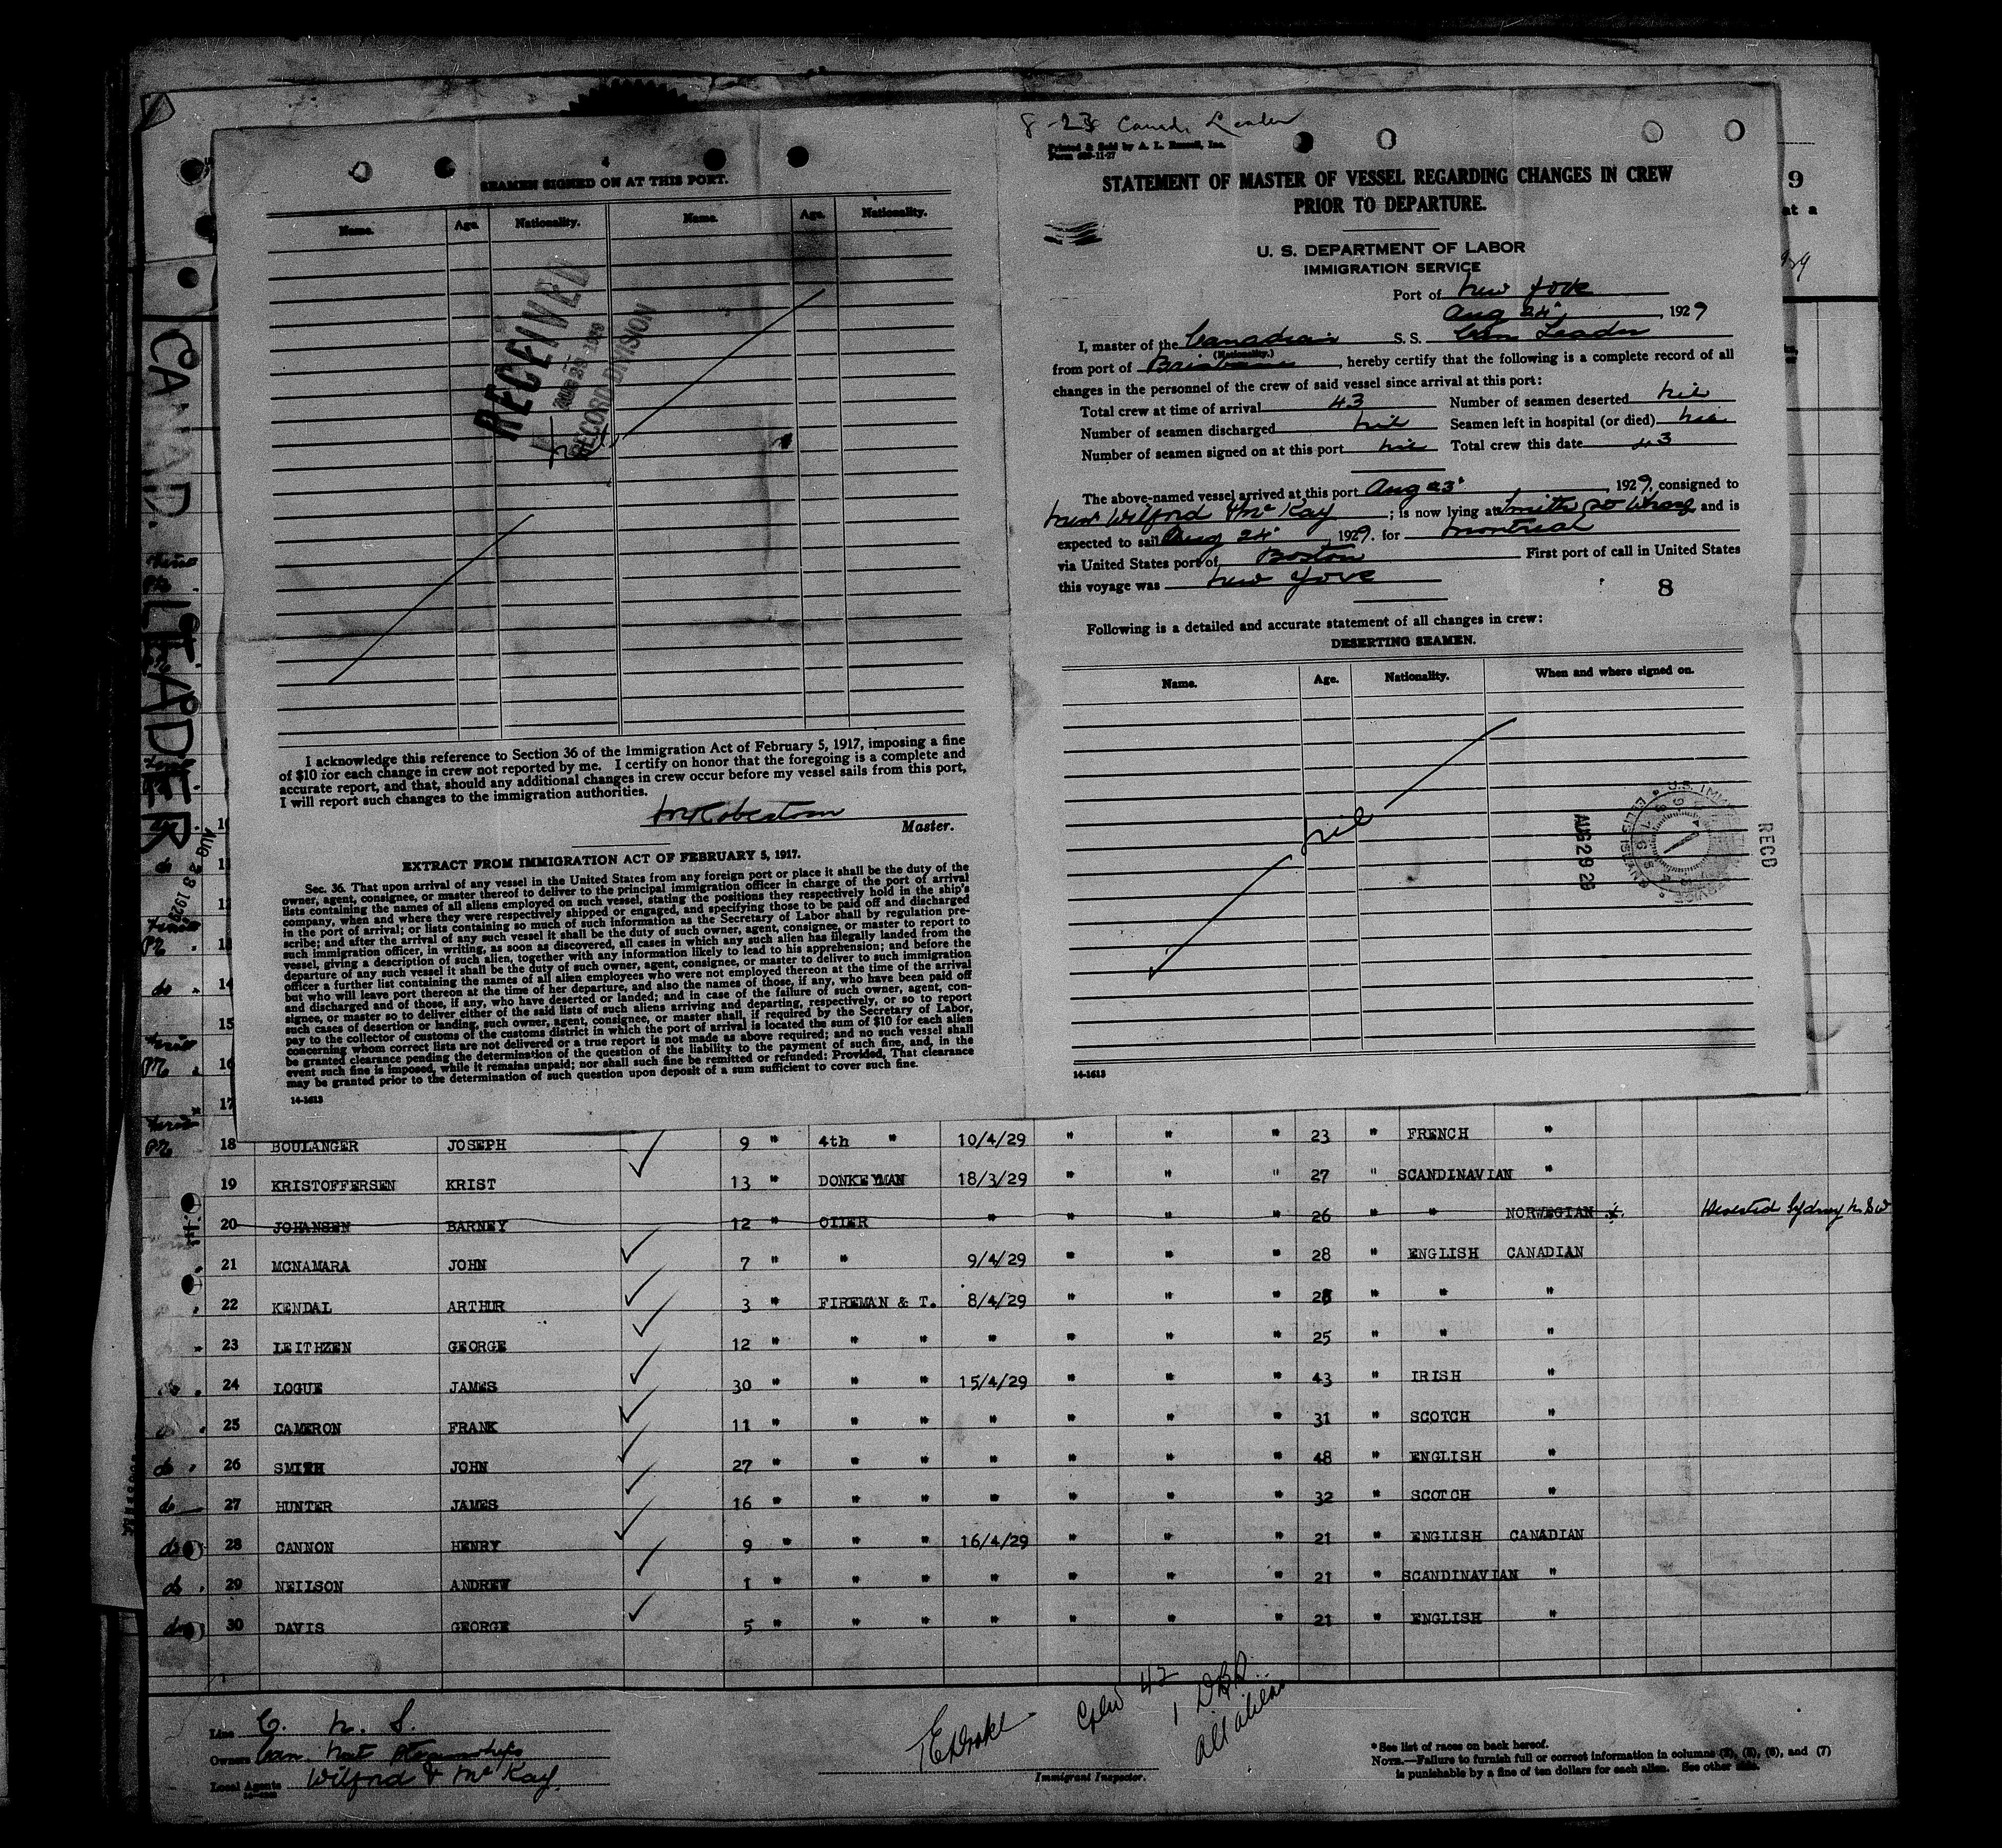 8-23 Canad. Leader
Printed & Sold by A. L. Russell, Inc.
SEAMEN SIGNED ON AT THIS PORT.
Name. Age. Nationality. Name. Age. Nationality.
RECEIVED
RECORD DIVISION
I acknowledge this reference to Section 36 of the Immigration Act of February 5, 1917, imposing a fine
of $10 for each change in crew not reported by me. I certify on honor that the foregoing is a complete and
accurate report, and that, should any additional changes in crew occur before my vessel sails from this port,
I will report such changes to the immigration authorities.
Master.
EXTRACT FROM IMMIGRATION ACT OF FEBRUARY 5, 1917.
Sec. 36. That upon arrival of any vessel in the United States from any foreign port or place it shall be the duty of the
owner, agent, consignee, or master thereof to deliver to the principal immigration officer in charge of the port of arrival
lists containing the names of all aliens employed on such vessel, stating the positions they respectively hold in the ship's
company, when and where they were respectively shipped or engaged, and specifying those to be paid off and discharged
in the port of arrival; or lists containing so much of such information as the Secretary of Labor shall by regulation pre-
scribe; and after the arrival of any such vessel it shall be the duty of such owner, agent, consignee, or master to report to
such immigration officer, in writing, as soon as discovered, all cases in which any such alien has illegally landed from the
vessel, giving a description of such alien, together with any information likely to lead to his apprehension; and before the
departure of any such vessel it shall be the duty of such owner, agent, consignee, or master to deliver to such immigration
officer a further list containing the names of all alien employees who were not employed thereon at the time of the arrival
but who will leave port thereon at the time of her departure, and also the names of those, if any, who have been paid off
and discharged and of those, if any, who have deserted or landed; and in case of the failure of such owner, agent, con-
signee, or master so to deliver either of the said lists of such aliens arriving and departing, respectively, or so to report
such cases of desertion or landing, such owner, agent, consignee, or master shall, if required by the Secretary of Labor,
pay to the collector of customs of the customs district in which the port of arrival is located the sum of $10 for each alien
concerning whom correct lists are not delivered or a true report is not made as above required; and no such vessel shall
be granted clearance pending the determination of the question of the liability to the payment of such fine, and, in the
event such fine is imposed, while it remains unpaid; nor shall such fine be remitted or refunded: Provided, That clearance
may be granted prior to the determination of such question upon deposit of a sum sufficient to cover such fine.
14-1613
STATEMENT OF MASTER OF VESSEL REGARDING CHANGES IN CREW
PRIOR TO DEPARTURE.
U. S. DEPARTMENT OF LABOR
IMMIGRATION SERVICE
Port of New York
Aug 24", 1929
I, master of the Canadian S. S. Can Leader
(Nationality.)
from port of Brisbane, hereby certify that the following is a complete record of all
changes in the personnel of the crew of said vessel since arrival at this port:
Total crew at time of arrival 43 Number of seamen deserted nil
Number of seamen discharged nil Seamen left in hospital (or died) nil
Number of seamen signed on at this port nil Total crew this date 43
The above-named vessel arrived at this port Aug 23", 1929, consigned to
Wilford & McKay; is now lying at Smith St Wharf and is
expected to sail Aug 24", 1929. for Montreal
via United States port of Boston First port of call in United States
this voyage was New York
8
Following is a detailed and accurate statement of all changes in crew:
DESERTING SEAMEN.
Name. Age. Nationality. When and where signed on.
nil
RECD
AUG 29 29
14-1613
CANAD. LEADER
AUG 23 1929
10
11
12
13
14
15
16
17
18 BOULANGER JOSEPH 9 " 4th " 10/4/29 " " " 23 " FRENCH "
19 KRISTOFFERSEN KRIST 13 " DONKEYMAN 18/3/29 " " " 27 " SCANDINAVIAN "
20 JOHANSEN BARNEY 12 " OILER " " " " 26 " " NORWEGIAN Deserted Sydney N.S.W
21 MCNAMARA JOHN 7 " " 9/4/29 " " " 28 " ENGLISH CANADIAN
22 KENDAL ARTHUR 3 " FIREMAN & T. 8/4/29 " " " 28 " " "
23 LEITHZEN GEORGE 12 " " " " " " " 25 " " "
24 LOGUE JAMES 30 " " " 15/4/29 " " " 43 " IRISH "
25 CAMERON FRANK 11 " " " " " " " 31 " SCOTCH "
26 SMITH JOHN 27 " " " " " " " 48 " ENGLISH "
27 HUNTER JAMES 16 " " " " " " " 32 " SCOTCH "
28 CANNON HENRY 9 " " " 16/4/29 " " " 21 " ENGLISH CANADIAN
29 NEILSON ANDREW 1 " " " " " " " 21 " SCANDINAVIAN "
30 DAVIS GEORGE 5 " " " " " " " 21 " ENGLISH "
Line C. N. S.
Owners Can. Nat Steamships
Local Agents Wilford & McKay.
Crew 42
1 DBR
all aliens
Immigrant Inspector.
*See list of races on back hereof.
NOTE.—Failure to furnish full or correct information in columns (2), (5), (6), and (7)
is punishable by a fine of ten dollars for each alien. See other side.